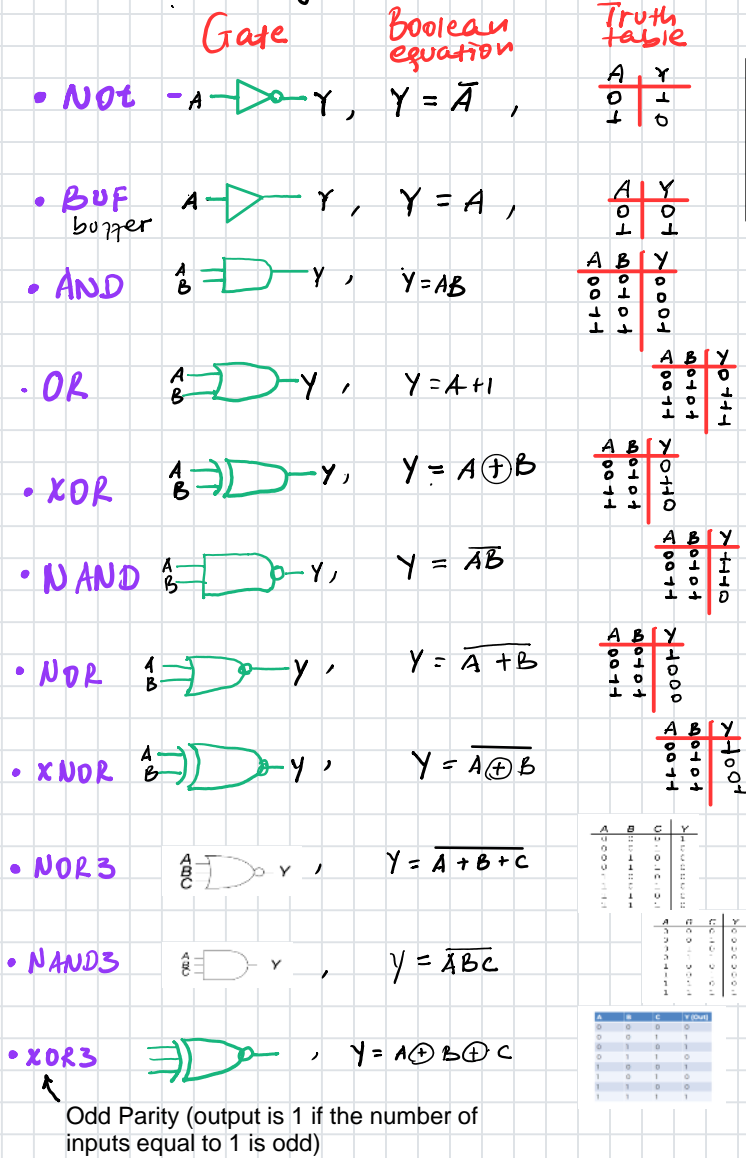 Gate Boolean equation Truth table
• NOT - A Y , Y = A̅ ,
A Y
0 1
1 0
• BUF A Y , Y = A ,
buffer
A Y
0 0
1 1
• AND A B Y , Y = AB
A B Y
0 0 0
0 1 0
1 0 0
1 1 1
• OR A B Y , Y = A + 1
A B Y
0 0 0
0 1 1
1 0 1
1 1 1
• XOR A B Y , Y = A ⊕ B
A B Y
0 0 0
0 1 1
1 0 1
1 1 0
• NAND A B Y , Y = A̅B̅
A B Y
0 0 1
0 1 1
1 0 1
1 1 0
• NOR A B Y , Y = A̅ ̅+̅ ̅B̅
A B Y
0 0 1
0 1 0
1 0 0
1 1 0
• XNOR A B Y , Y = A̅ ̅⊕̅ ̅B̅
A B Y
0 0 1
0 1 0
1 0 0
1 1 1
• NOR3 A B C Y , Y = A̅ ̅+̅ ̅B̅ ̅+̅ ̅C̅
A B C Y
• NAND3 A B C Y , Y = A̅B̅C̅
• XOR3 , Y = A ⊕ B ⊕ C
A B C Y (Out)
0 0 0 0
0 0 1 1
0 1 0 1
0 1 1 0
1 0 0 1
1 0 1 0
1 1 0 0
1 1 1 1
Odd Parity (output is 1 if the number of
inputs equal to 1 is odd)